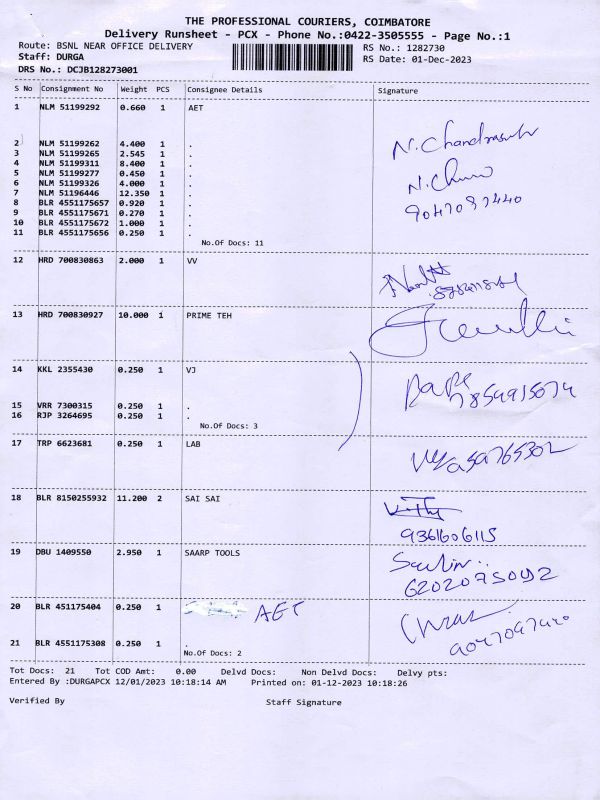 THE PROFESSIONAL COURIERS, COIMBATORE
Delivery Runsheet - PCX - Phone No.:0422-3505555 - Page No.:1
Route: BSNL NEAR OFFICE DELIVERY RS No.: 1282730
Staff: DURGA RS Date: 01-Dec-2023
DRS No.: DCJB128273001
S No Consignment No Weight PCS Consignee Details Signature
1 NLM 51199292 0.660 1 AET
2 NLM 51199262 4.400 1 .
3 NLM 51199265 2.545 1 .
4 NLM 51199311 8.400 1 .
5 NLM 51199277 0.450 1 .
6 NLM 51199326 4.000 1 .
7 NLM 51196446 12.350 1 .
8 BLR 4551175657 0.920 1 .
9 BLR 4551175671 0.270 1 .
10 BLR 4551175672 1.000 1 .
11 BLR 4551175656 0.250 1 .
No.Of Docs: 11
12 HRD 700830863 2.000 1 VV
13 HRD 700830927 10.000 1 PRIME TEH
14 KKL 2355430 0.250 1 VJ
15 VRR 7300315 0.250 1 .
16 RJP 3264695 0.250 1 .
No.Of Docs: 3
17 TRP 6623681 0.250 1 LAB
18 BLR 8150255932 11.200 2 SAI SAI
9361606115
19 DBU 1409550 2.950 1 SAARP TOOLS
20 BLR 451175404 0.250 1 AET
21 BLR 4551175308 0.250 1 .
No.Of Docs: 2
Tot Docs: 21 Tot COD Amt: 0.00 Delvd Docs: Non Delvd Docs: Delvy pts:
Entered By :DURGAPCX 12/01/2023 10:18:14 AM Printed on: 01-12-2023 10:18:26
Verified By Staff Signature